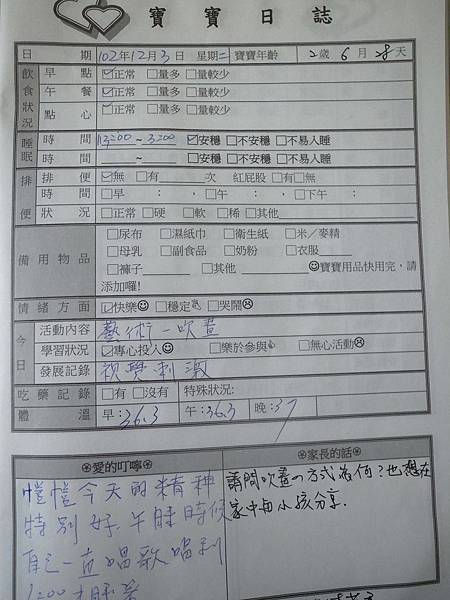 寶寶日誌
日期 102年12月3日 星期二 寶寶年齡 2歲6月28天
飲食狀況 早點 ☑正常 □量多 □量較少
午餐 ☑正常 □量多 □量較少
點心 ☑正常 □量多 □量較少
睡眠 時間 ~3:00 ☑安穩 □不安穩 □不易入睡
時間 ~ □安穩 □不安穩 □不易入睡
排便 排便 ☑無 □有 次 紅屁股 □有□無
時間 □早 : , □午 : , □下午 :
狀況 □正常 □硬 □軟 □稀 □其他
備用物品 □尿布 □濕紙巾 □衛生紙 □米/麥精
□母乳 □副食品 □奶粉 □衣服
□褲子 □其他 ☺寶寶用品快用完,請
添加囉!
情緒方面 ☑快樂☺ □穩定 □哭鬧☹
今日 活動內容 藝術-吹畫
學習狀況 ☑專心投入☺ □樂於參與 □無心活動☹
發展記錄 視覺刺激
吃藥記錄 □有 □沒有 特殊狀況:
體溫 早:36.3 午:36.3 晚:37
愛的叮嚀
愷愷今天的精神
特別好,午睡時候
自己一直唱歌唱到
家長的話
請問吹畫的方式為何?也想在
家中與小孩分享.